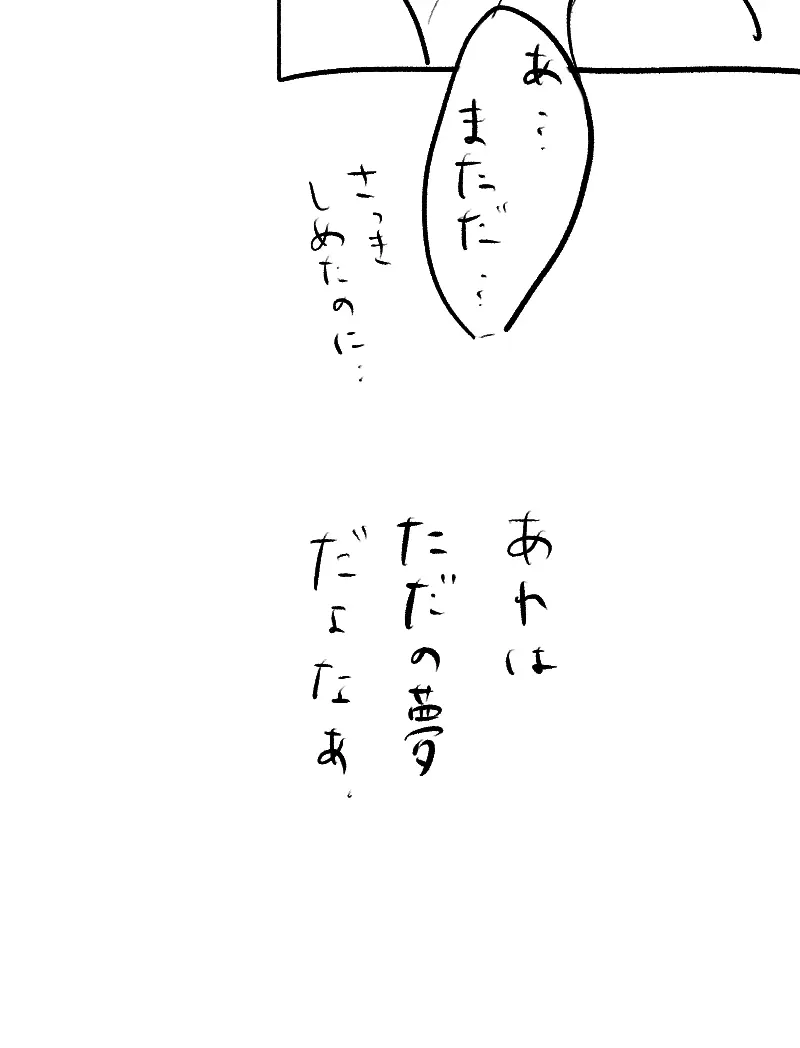 あ…
まただ…
さっき
しめたのに…
あれは
ただの夢
だよなぁ.